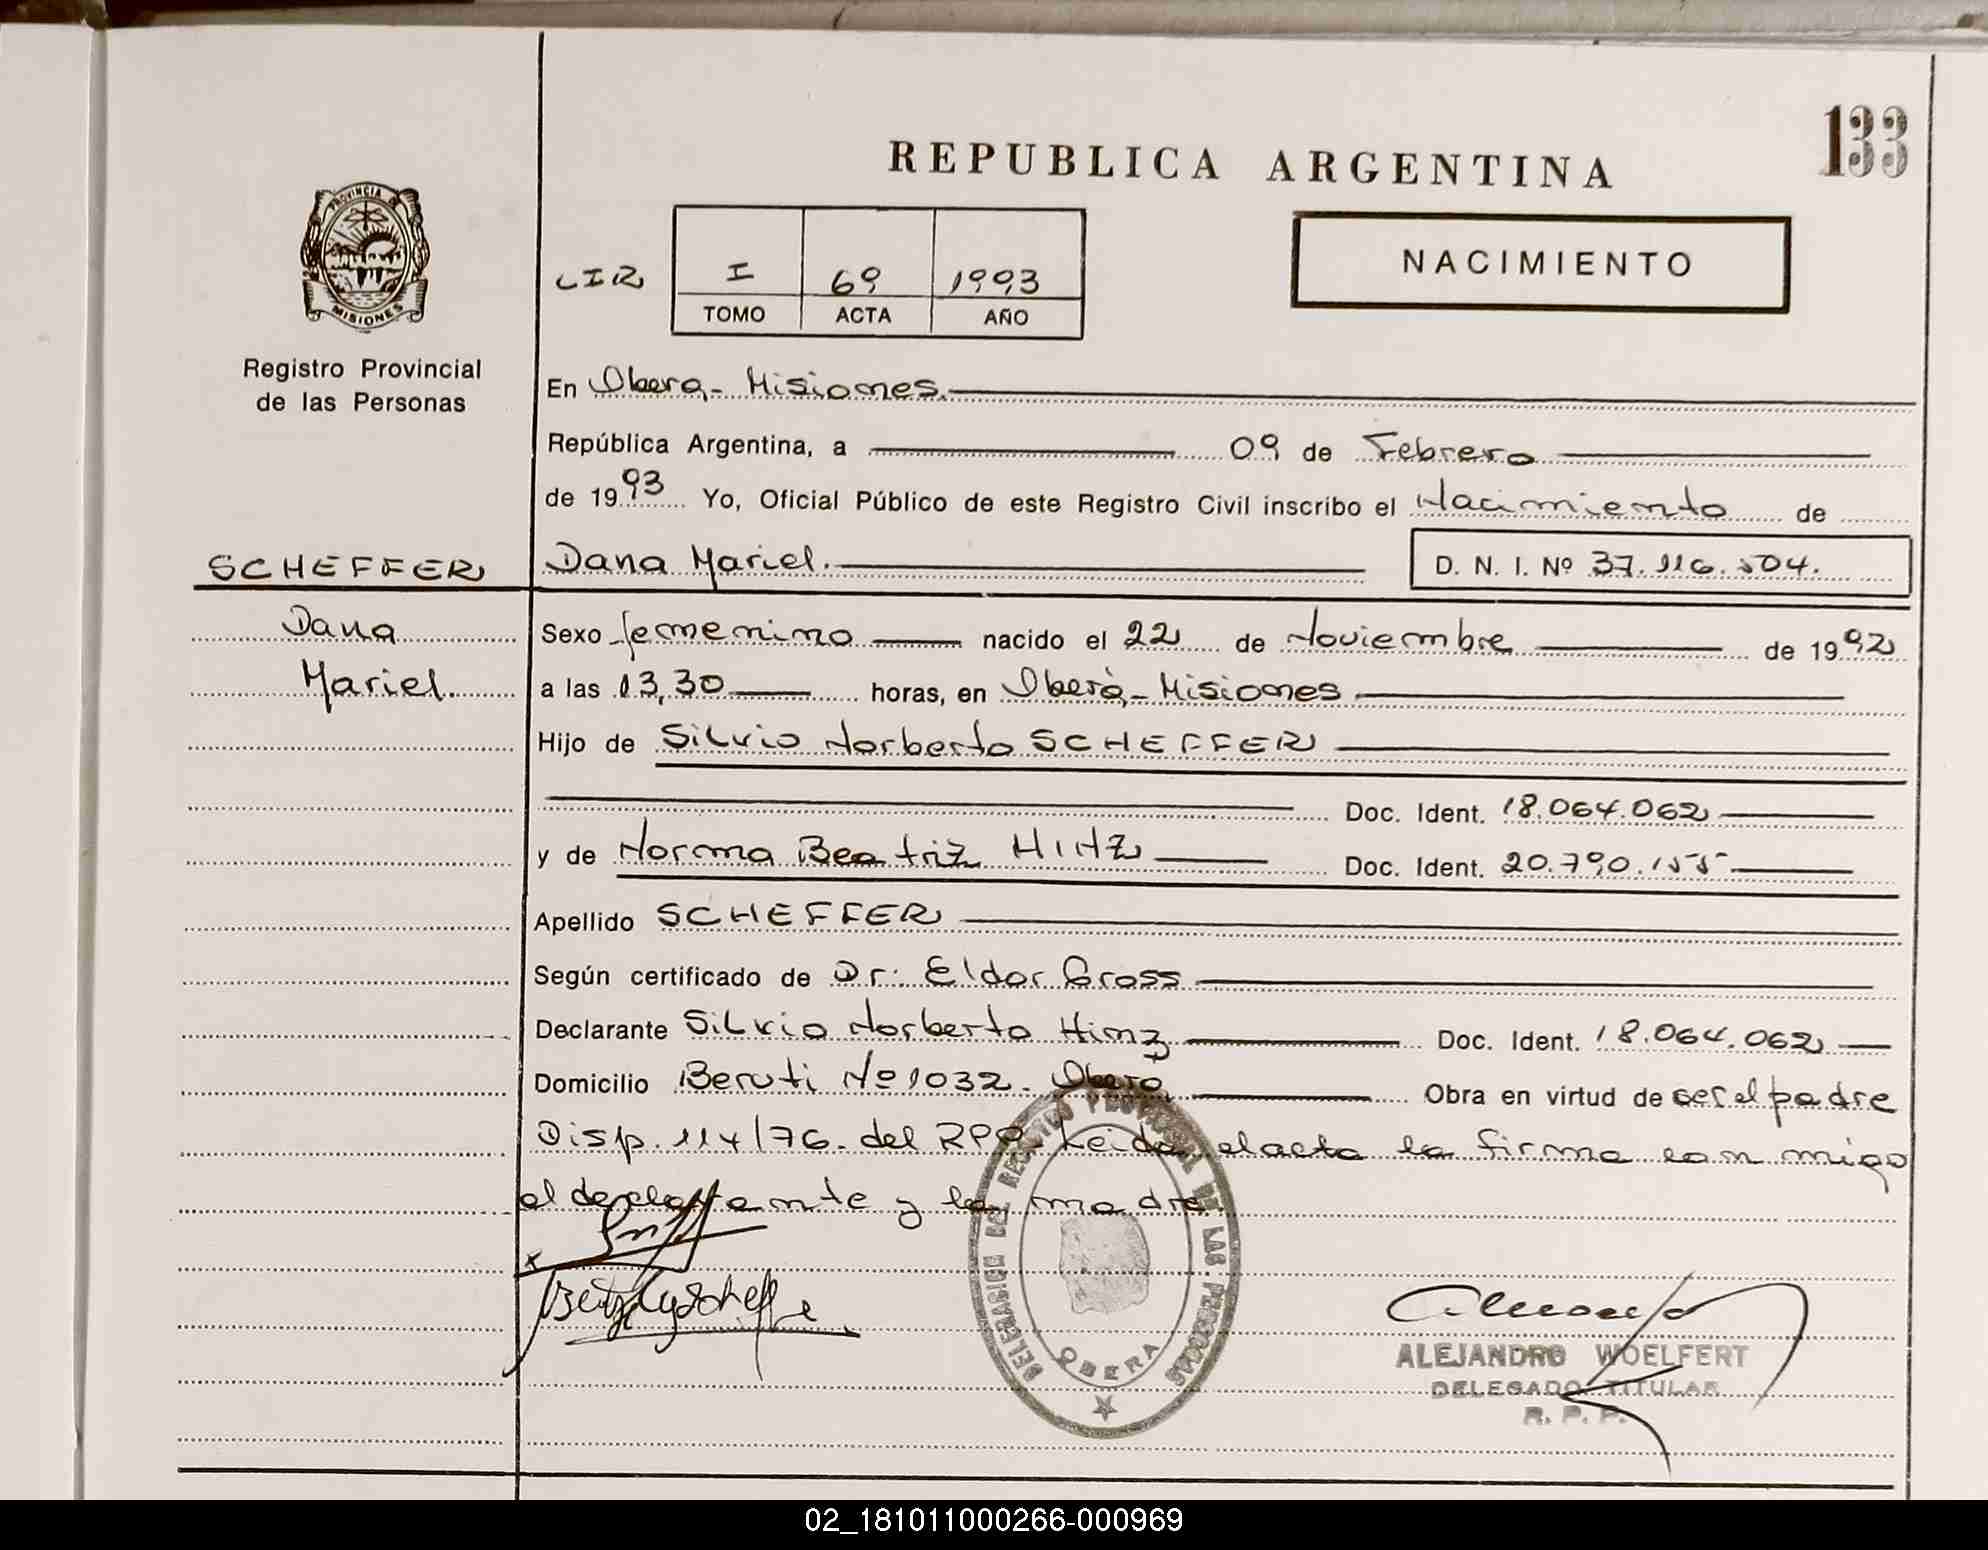 133
REPUBLICA ARGENTINA
PROVINCIA DE
MISIONES
NACIMIENTO
LIR I 69 1993
TOMO ACTA AÑO
Registro Provincial
de las Personas
En Obera - Misiones.
República Argentina, a 09 de Febrero
de 1993 Yo, Oficial Público de este Registro Civil inscribo el Nacimiento de
SCHEFFER Dana Mariel. D. N. I. Nº 37.116.504.
Dana
Mariel.
Sexo femenino nacido el 22 de Noviembre de 1992
a las 13,30 horas, en Oberá - Misiones
Hijo de Silvio Norberto SCHEFFER
Doc. Ident. 18.064.062
y de Norma Beatriz HINZ Doc. Ident. 20.790.155
Apellido SCHEFFER
Según certificado de Dr: Eldor Gross
Declarante Silvio Norberto Hinz Doc. Ident. 18.064.062
Domicilio Beruti Nº 1032 - Obera Obra en virtud de ser el padre
Disp. 114/76. del RPP. Leida el acta la firma con migo
el declarante y la madre
DELEGACION DEL REGISTRO PROVINCIAL DE LAS PERSONAS
OBERA
ALEJANDRO WOELFERT
DELEGADO TITULAR
R. P. P.
02_181011000266-000969